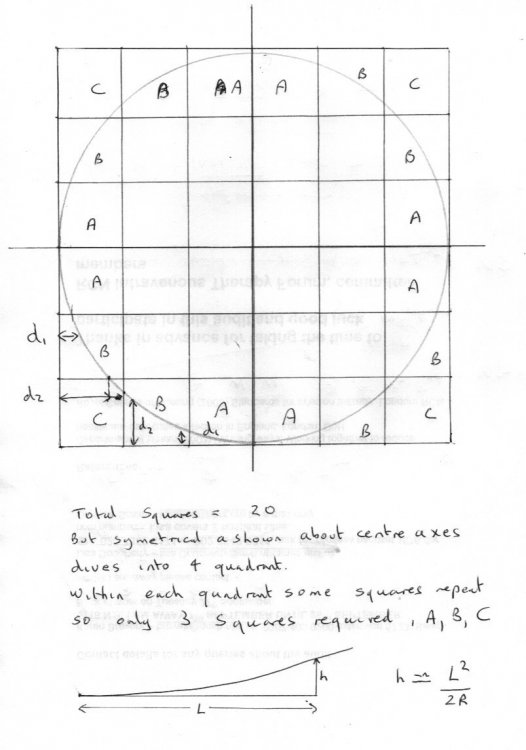 C B A A B C
B B
A A
A A
d₁
B B
d₂
C B d₂ A d₁ A B C
Total Squares = 20
But symetrical a shown about centre axes
dives into 4 quadrant.
Within each quadrant some squares repeat
so only 3 squares required , A, B, C
h
L
h ≃ L²
2R